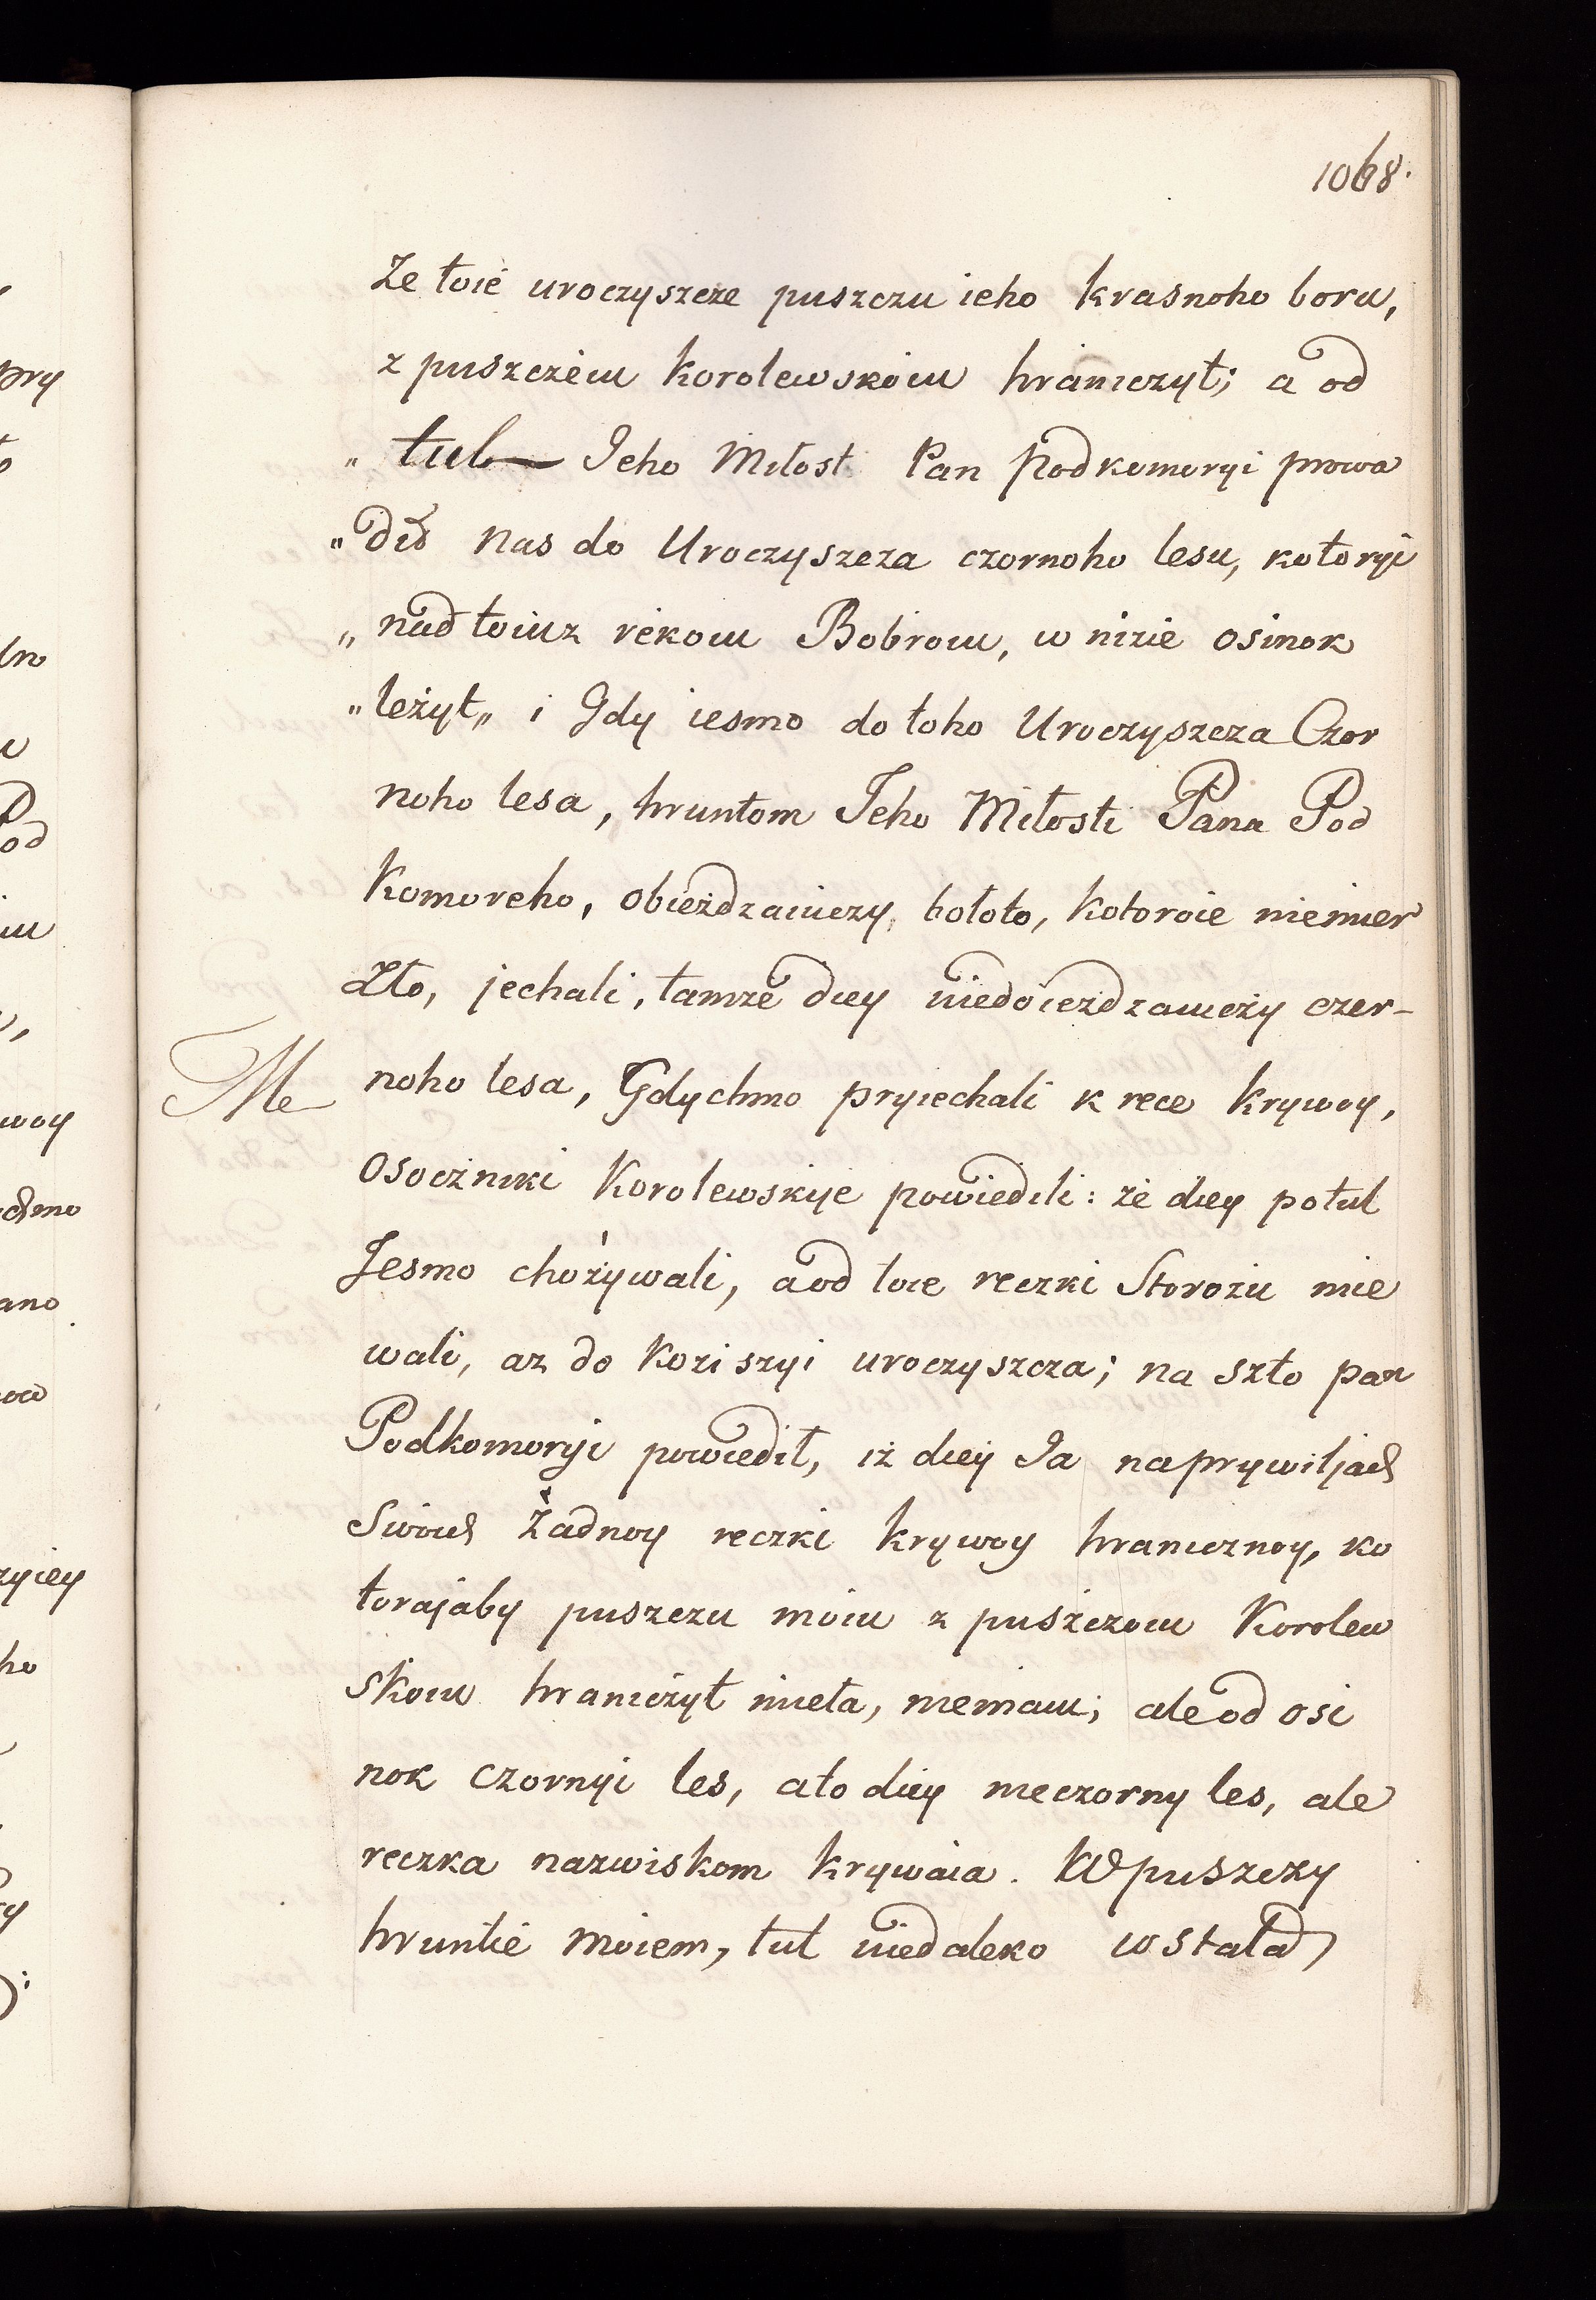 1068.
Że toie uroczyszcze puszczu ieho krasnoho boru,
z puszczeiu korolewskoiu hraniczyt; a od
„ tul— Jeho Miłost Pan Podkomoryi prowa
„ dił nas do Uroczyszcza czornoho lesu, kotoryi
„ nad toiuż rekoiu Bobroiu, w nizie osinok
„ leżyt„ i Gdy iesmo do toho Uroczyszcza Czor
noho lesa, hruntom Jeho Miłosti Pana Pod
Komoreho, obieżdzaiuczy, bołoto, kotoroie niemer
zło, jechali, tamże diey niedoieżdzaiuczy czor-
noho lesa, Gdychmo pryiechali k rece krywoy,
Osoczniki Korolewskije powiedili: że diey potul
Jesmo chożywali, a od toie reczki Storożu mie
wali, aż do koziszyi uroczyszcza; na szto pan
Podkomoryi powiedił, iż diey Ja na prywiljach
Swoich żadnoy reczki krywoy hranicznoy, ko
torajaby puszczu moiu z puszczoiu Korolew
skoiu hraniczyt mieła, niemaiu; ale od osi
nok czornyi les, a to diey nieczorny les, ale
reczka nazwiskom krywaia. W puszczy
hruntie moiem, tut niedaleko wstała